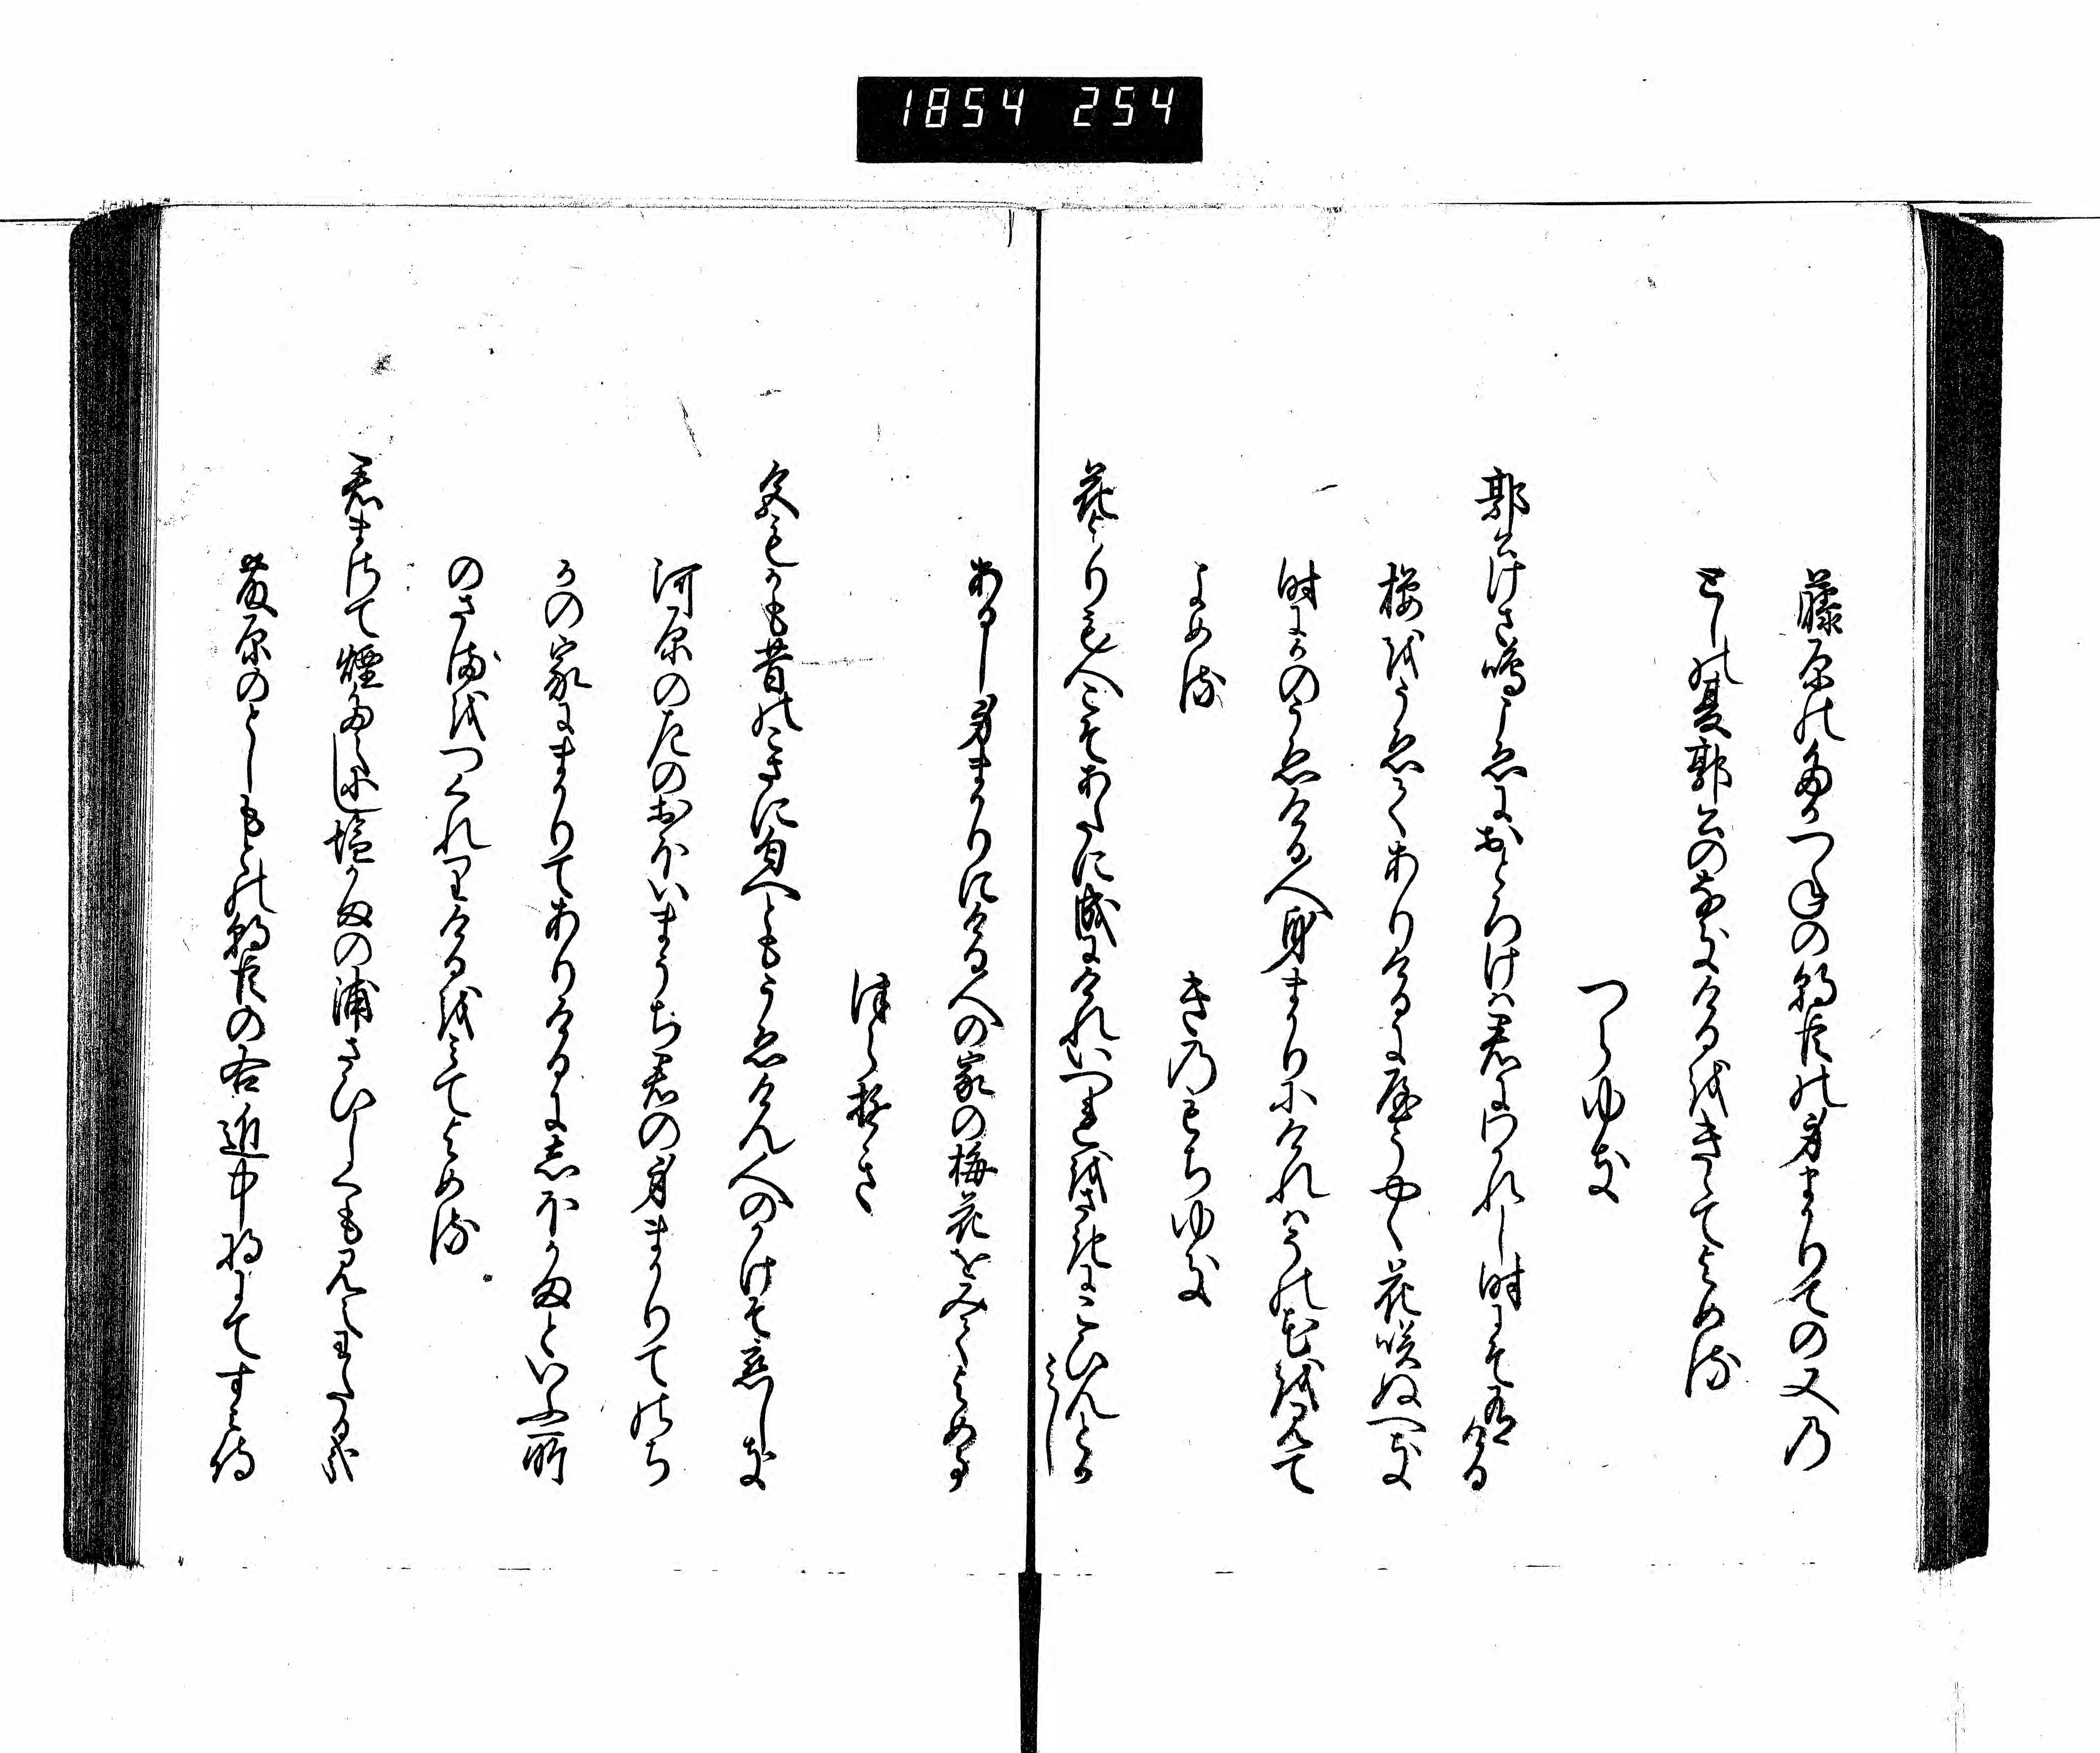 1854 254
藤原のたかつねの朝臣の身まかりての又の
としの夏郭公のなきけるをきゝてよめる
つらゆき
郭公けさ鳴こゑにおとろけは君にわかれし時にそ有ける
桜をうゑてありけるに屋うやく花咲ぬへき
時にかのうゑける人身まかりにけれはその花を見て
よめる
きのもちゆき
花よりも人こそあたに成にけれいつれをさきにこひんとか
みし
あるし身まかりにける人の家の梅花をみてよめる
つらゆき
色もかも昔のこさに匂へともうゑけん人のかけそ恋しき
河原の左のおほいまうち君の身まかりてのち
かの家にまかりてありけるにしほかまといふ所
のさまをつくれりけるをみてよめる
君まさて煙たえにし塩かまの浦さひしくも見えわたるかな
藤原のとしもとの朝臣の右近中将にてすみ侍